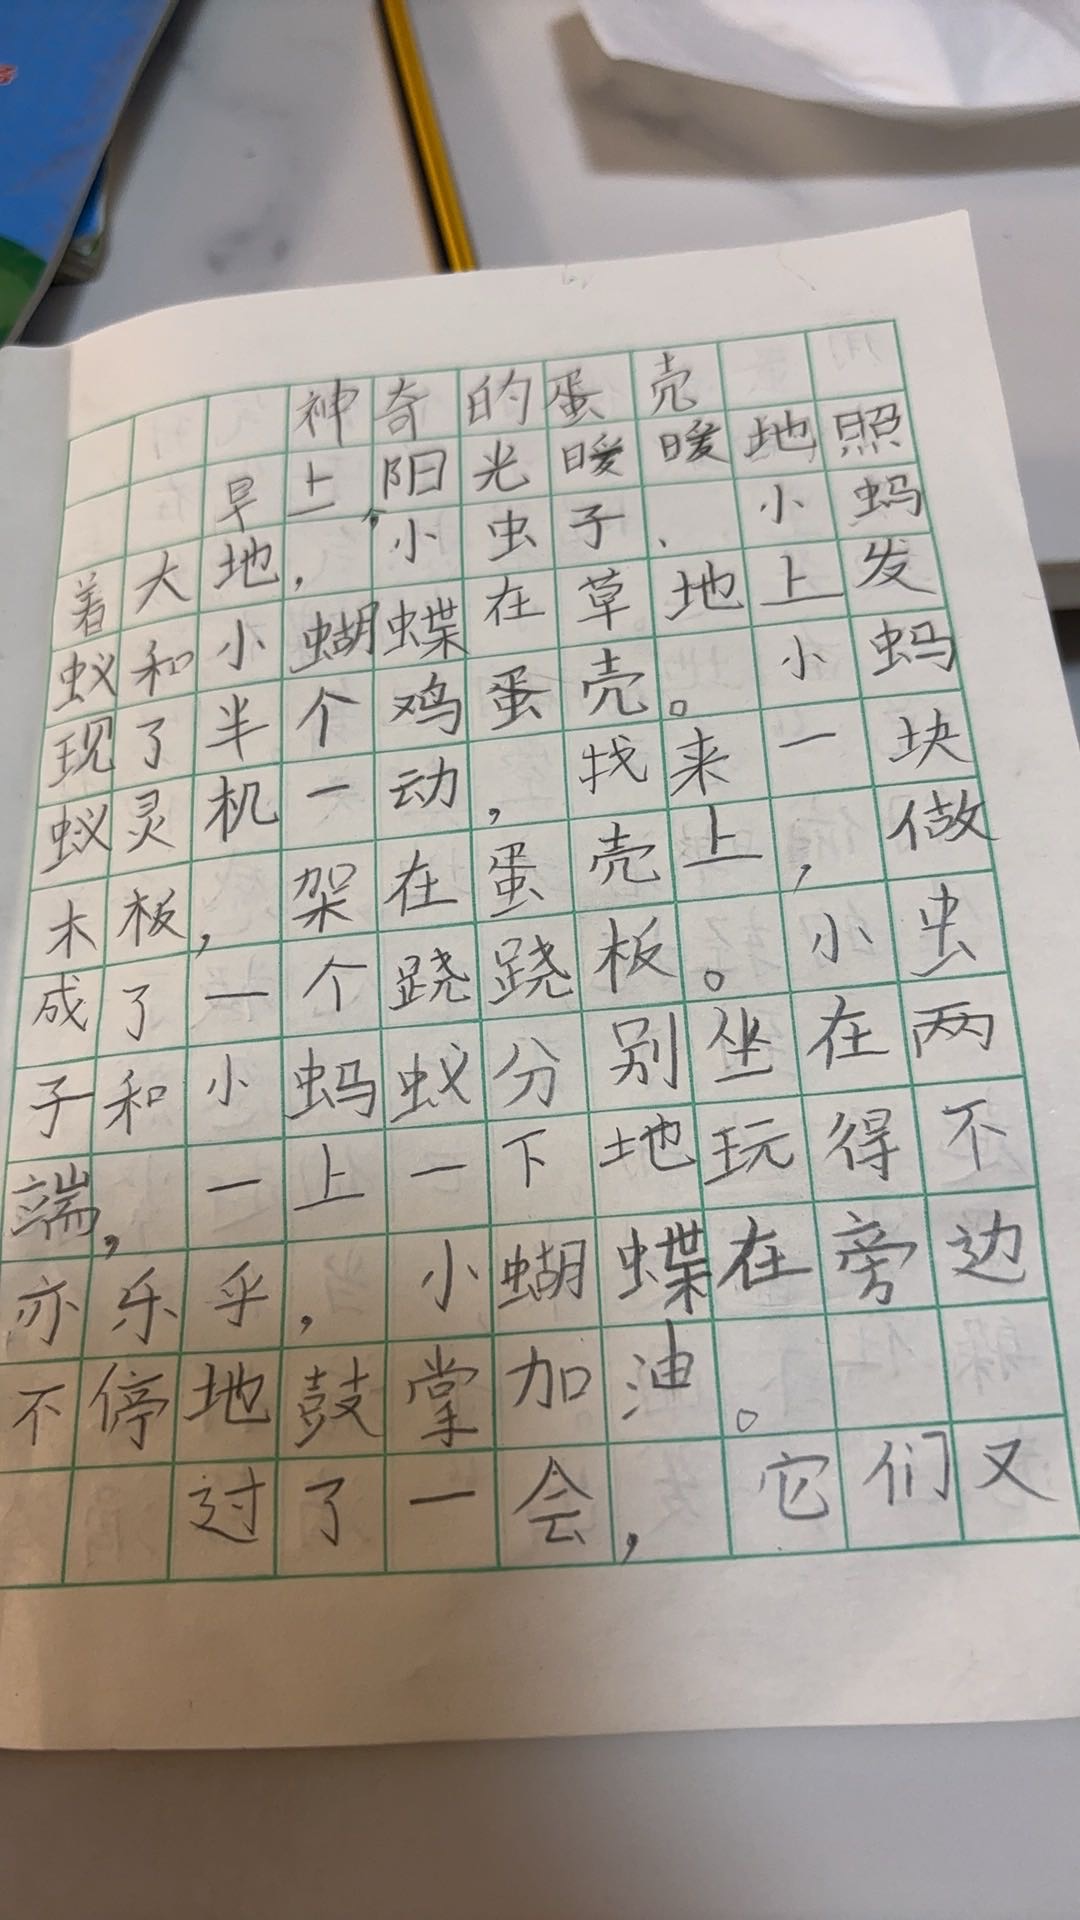 神奇的蛋壳
早上，阳光暖暖地照
着大地，小虫子、小蚂
蚁和小蝴蝶在草地上发
现了半个鸡蛋壳。小蚂
蚁灵机一动，找来一块
木板，架在蛋壳上，做
成了一个跷跷板。小虫
子和小蚂蚁分别坐在两
端，一上一下地玩得不
亦乐乎，小蝴蝶在旁边
不停地鼓掌加油。
过了一会，它们又